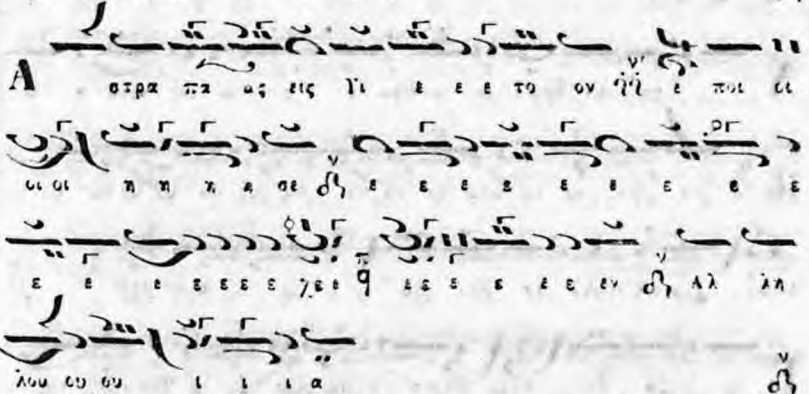 Α στρα πα ας εις Γι ε ε ε το ον ε ποι οι
οι οι η η η η σε ε ε ε ε ε ε ε ε ε
ε ε ε ε ε ε ε χεε π̈ q ε ε ε ε ε ε εν Αλ λη
λου ου ου ι ι ι α